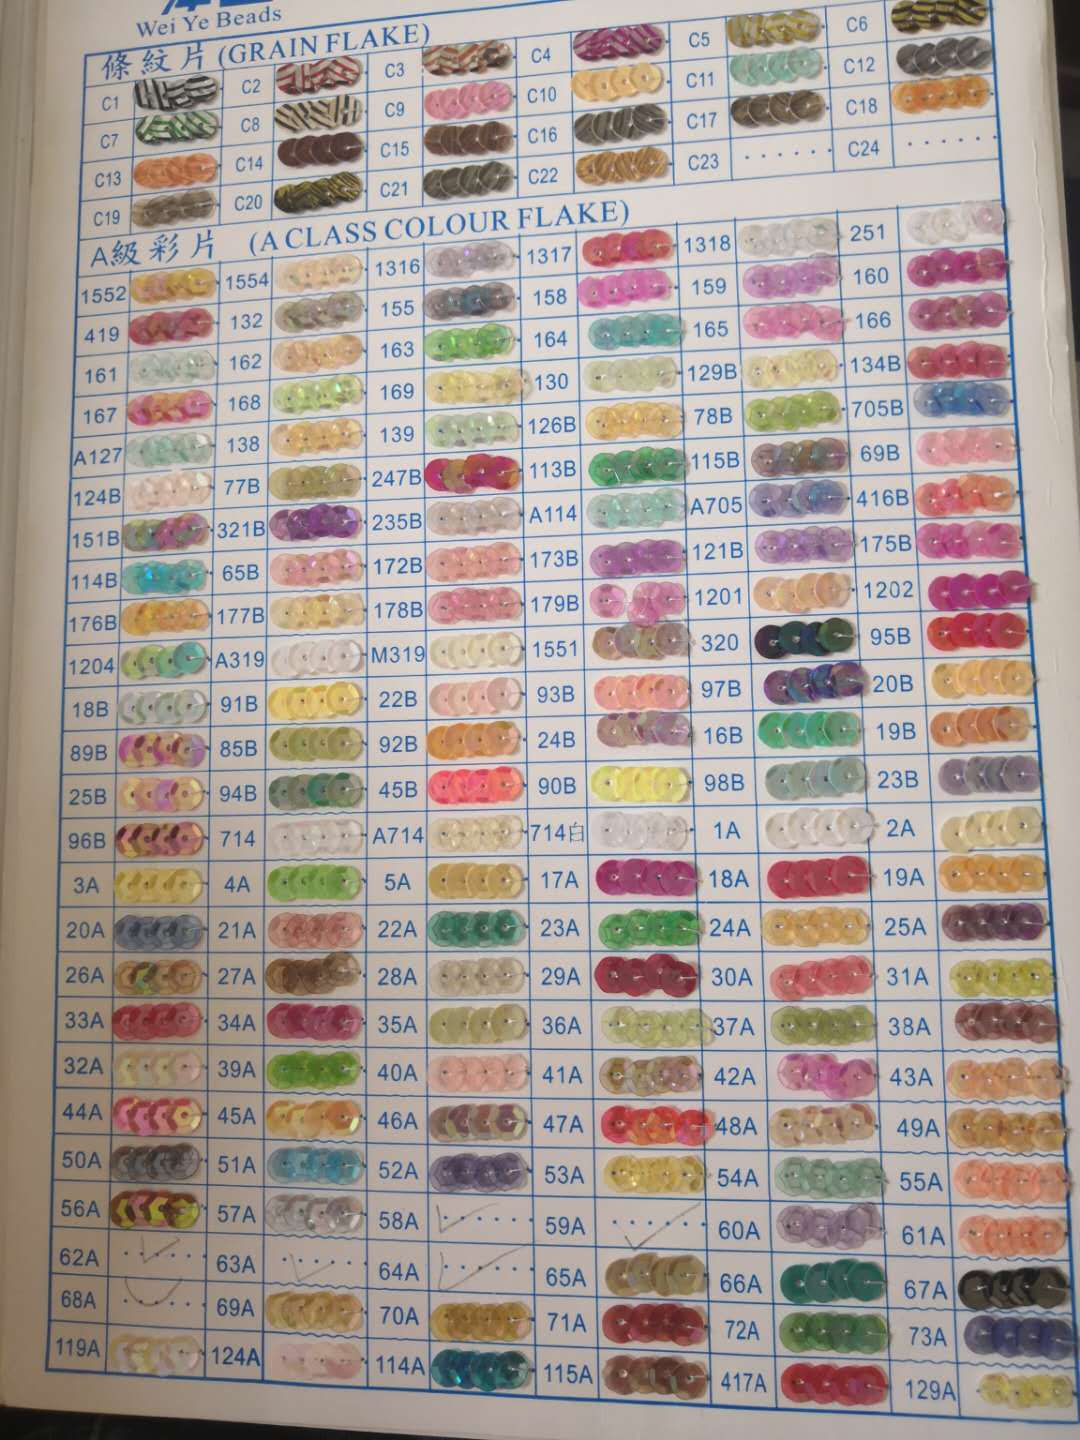 Wei Ye Beads
條紋片 (GRAIN FLAKE)
C1 C2 C3 C4 C5 C6
C7 C8 C9 C10 C11 C12
C13 C14 C15 C16 C17 C18
C19 C20 C21 C22 C23 C24
A級彩片 (A CLASS COLOUR FLAKE)
1552 1554 1316 1317 1318 251
419 132 155 158 159 160
161 162 163 164 165 166
167 168 169 130 129B 134B
A127 138 139 126B 78B 705B
124B 77B 247B 113B 115B 69B
151B 321B 235B A114 A705 416B
114B 65B 172B 173B 121B 175B
176B 177B 178B 179B 1201 1202
1204 A319 M319 1551 320 95B
18B 91B 22B 93B 97B 20B
89B 85B 92B 24B 16B 19B
25B 94B 45B 90B 98B 23B
96B 714 A714 714白 1A 2A
3A 4A 5A 17A 18A 19A
20A 21A 22A 23A 24A 25A
26A 27A 28A 29A 30A 31A
33A 34A 35A 36A 37A 38A
32A 39A 40A 41A 42A 43A
44A 45A 46A 47A 48A 49A
50A 51A 52A 53A 54A 55A
56A 57A 58A 59A 60A 61A
62A 63A 64A 65A 66A 67A
68A 69A 70A 71A 72A 73A
119A 124A 114A 115A 417A 129A